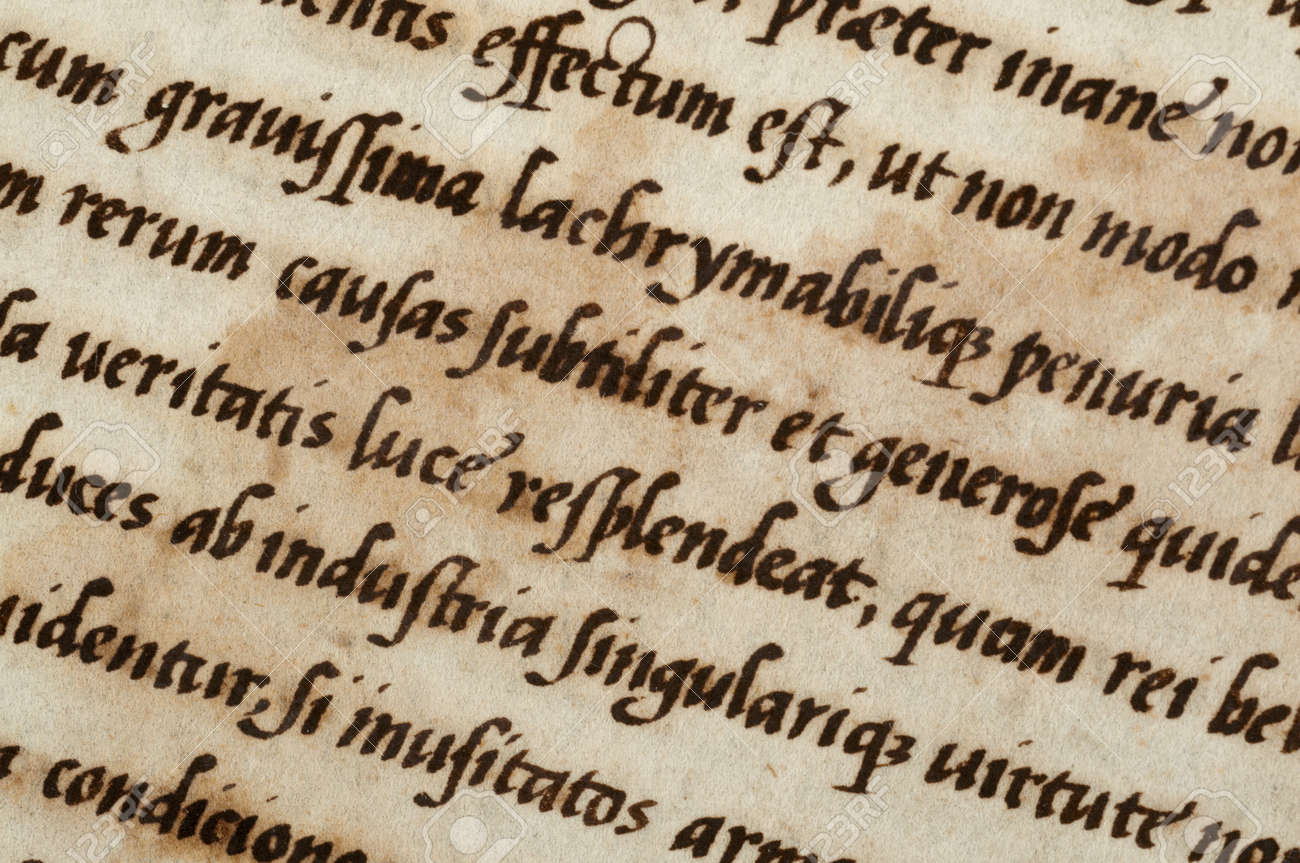 præter inané non
entis effectum eſt, ut non modo
cum grauiſſima lachrymabiliqꝫ penuria
m rerum cauſas ſubtiliter et generoſé quide
la ueritatis lucé reſplendeat, quam rei bel
duces ab induſtria ſingulariqꝫ uirtuté no
uidentur, ſi inuſitatos arm
condicione
123RF